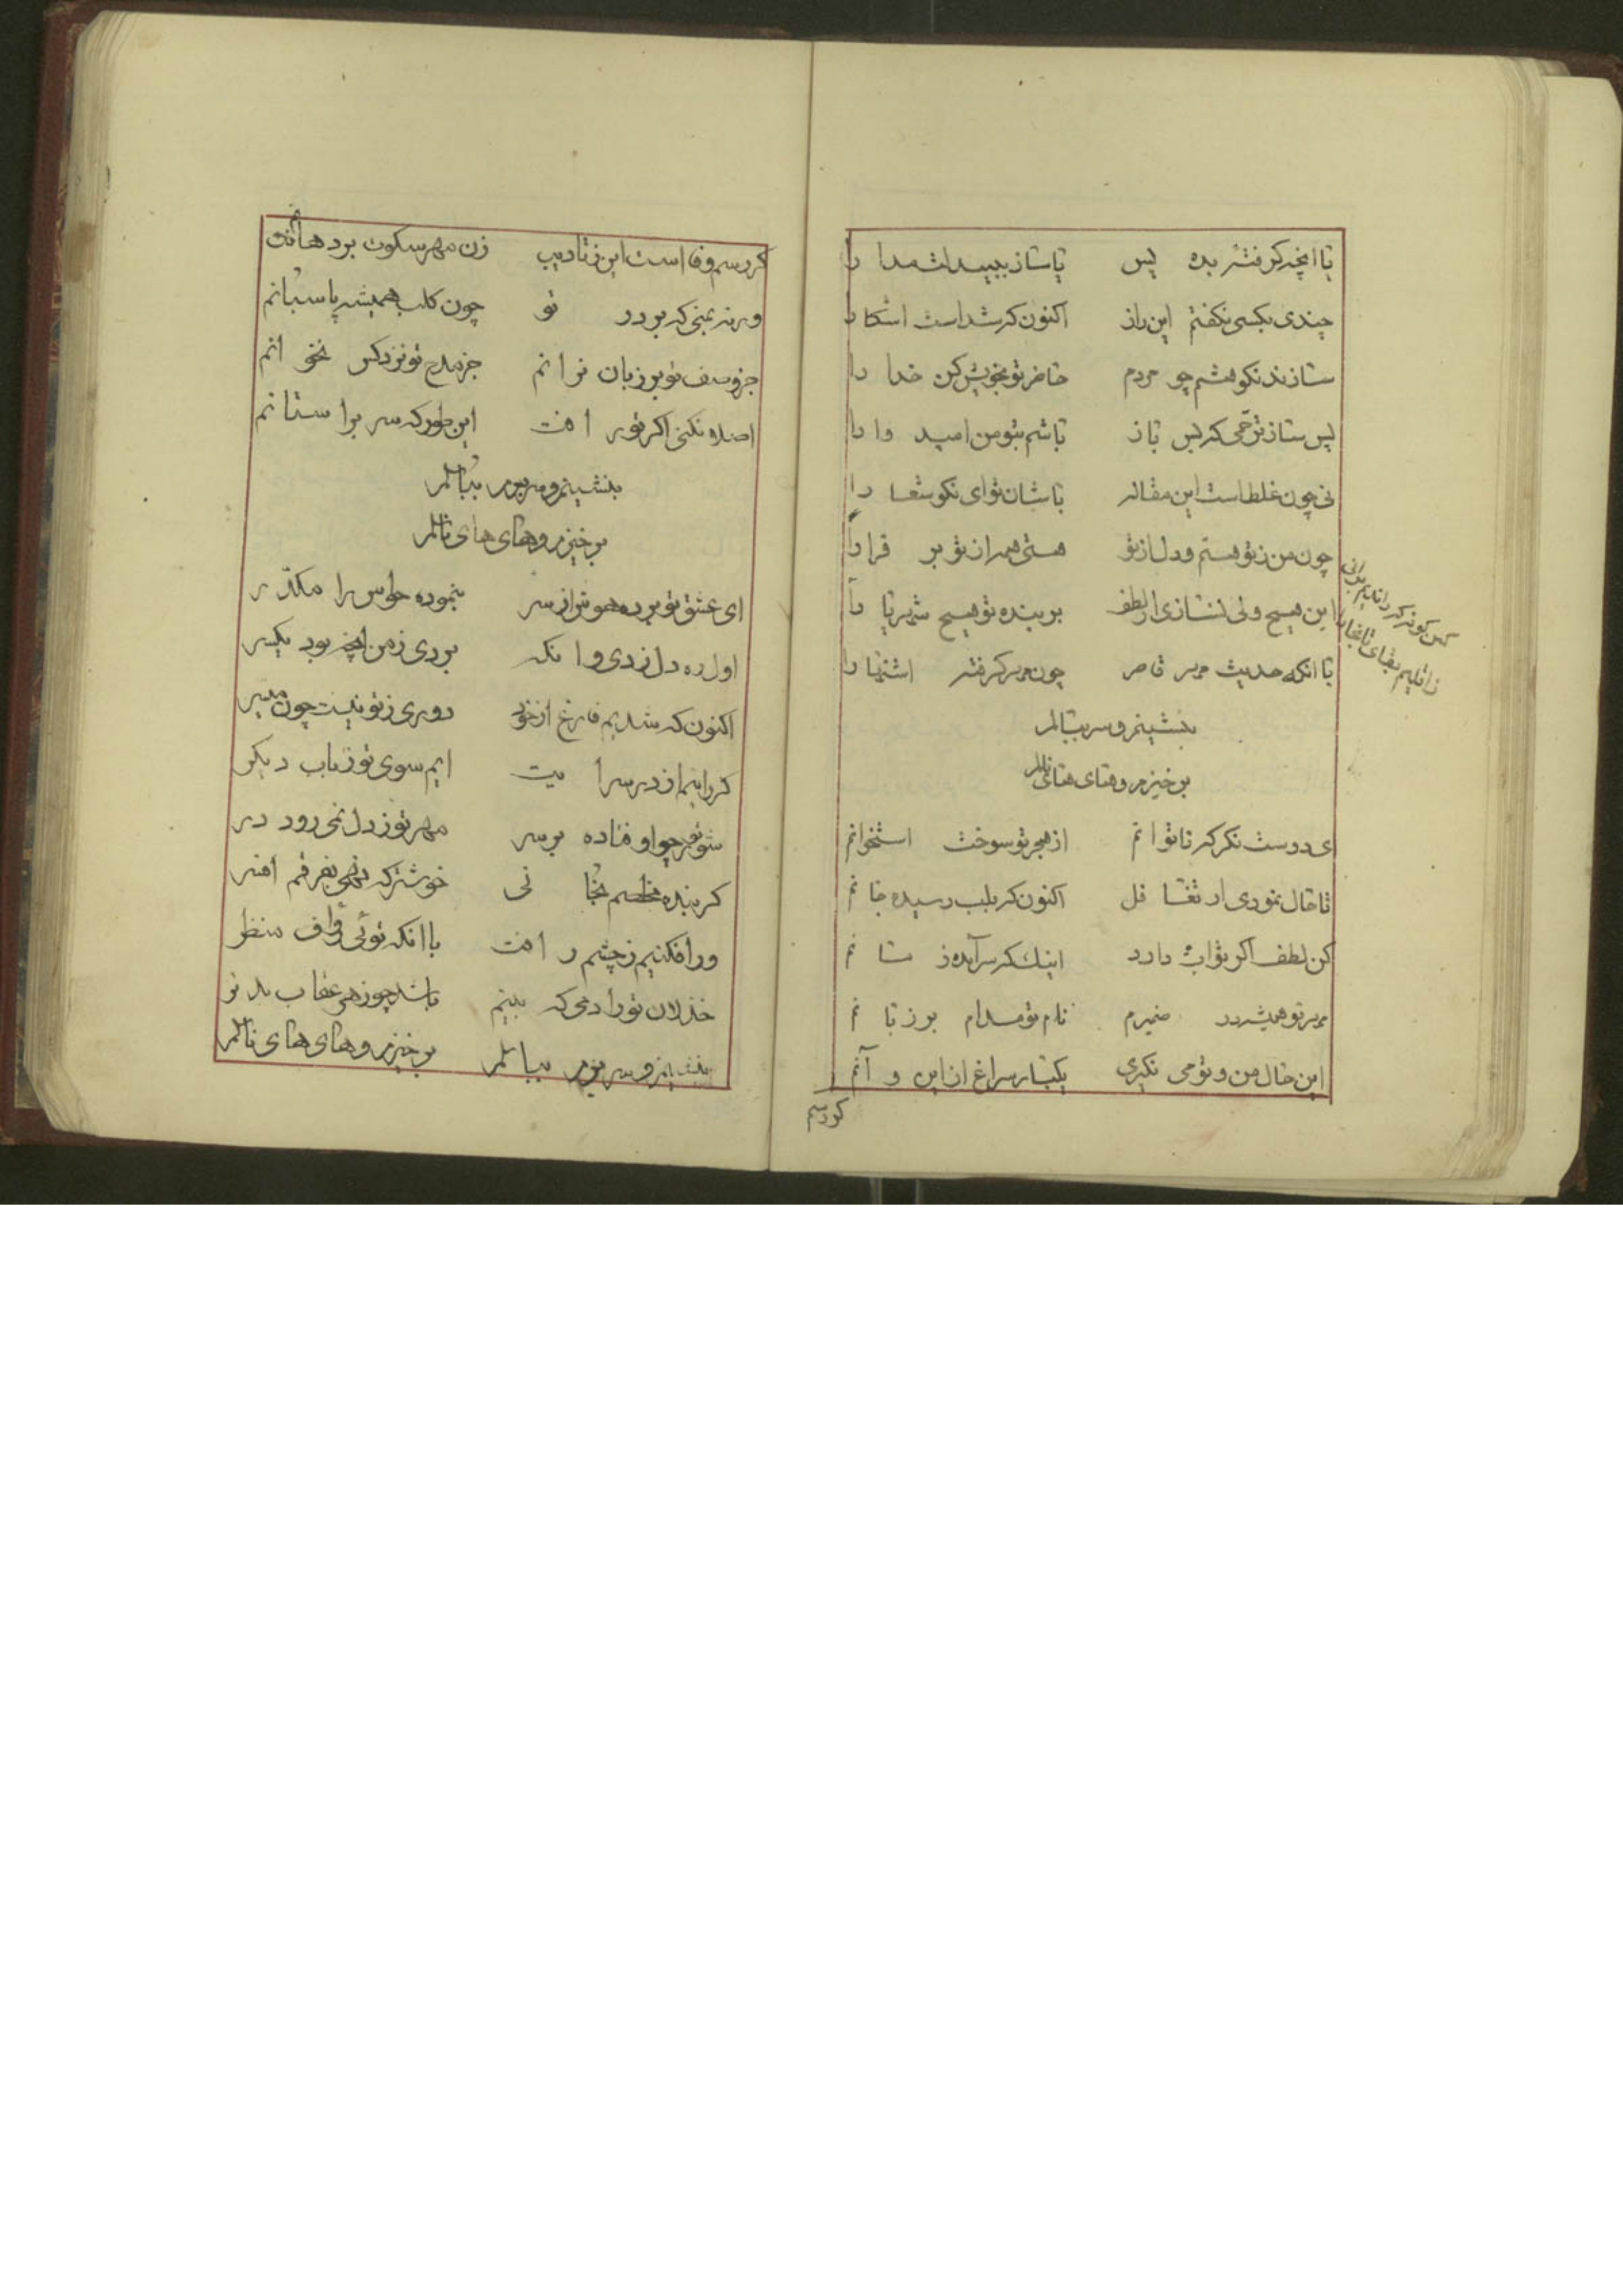 یا انچه گرفتهٔ بده پس یا ساز ببیدلت مدا را
چندی بکسی نگفتم این راز اکنون که شداست اشکا را
سازند نکوهشم چو مردم حاضر تو بخویش کن خدا را
پس ساز ترحمی که پس باز باشم بتو من امید وا را
نی چون غلطاست این مقاله باشان تو ای نکو شعا را
چون من ز تو هستم و دل از تو هستی همه از تو بر قرا را
این هیچ ولی نسازی از لطف بر بنده تو هیچ
با انکه حدیث مهر قاصر چون مهر گرفته اشتها را
بنشینم و سر ببالم
برخیزم و های های نالم
ی دوست نگر که ناتوانم از هجر تو سوخت استخوانم
تا حال نمودی ار تغا فل اکنون که بلب رسیده جانم
کن لطف اگر ثواب دارد اینک که سرآمده زمانم
مهر تو همیشه در ضمیرم نام تو مدام بر زبا نم
این حال من و تو می نگیری یکبار سراغ از این و آنم
گر رسم
گر رسم وفا است این ز تادیب زن مهر سکوت بر دهانم
ورنه بمنی که بر در تو چون کلب همیشه پاسبانم
جز وصف تو بر زبان نرانم جز مدح تو نزد کس نخو انم
اصلا نکنی اگر تو را فت این طور که سر بر استانم
بنشینم و سر ببالم
برخیزم و های های نالم
ای عشق تو برده هوش از سر بنموده حواس را مکدّ ر
اول ره دل زدی و انکه بردی ز من انچه بود یکسر
اکنون که شدیم فارغ از خود دوری ز تو نیست چون میسر
گر رانیم از در سرا یت ایم سوی تو ز باب دیگر
مهر تو ز دل نمی رود در
گر بنده بخوا نی خوشتر که نهی بفرقم افسر
ور افکنیم ز چشم را فت با انکه توئی منظر
خذلان تو را دمی که بینم باشد چو ز هر عقاب بد تر
بنشینم و سر ببالم برخیزم و های های نالم